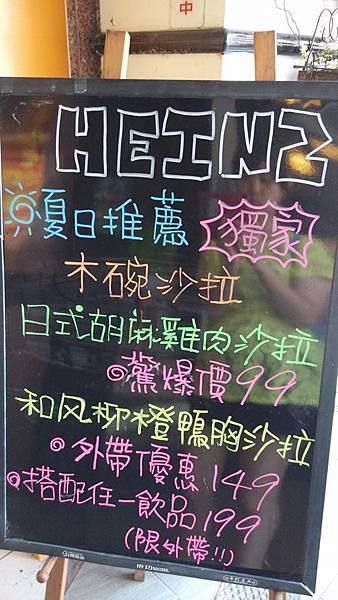 中
HEINZ
夏日推薦 獨家
木碗沙拉
日式胡麻雞肉沙拉
◎驚爆價99
和风柳橙鴨胸沙拉
◎外帶優惠149
◎搭配任一飲品199
(限外帶!!)